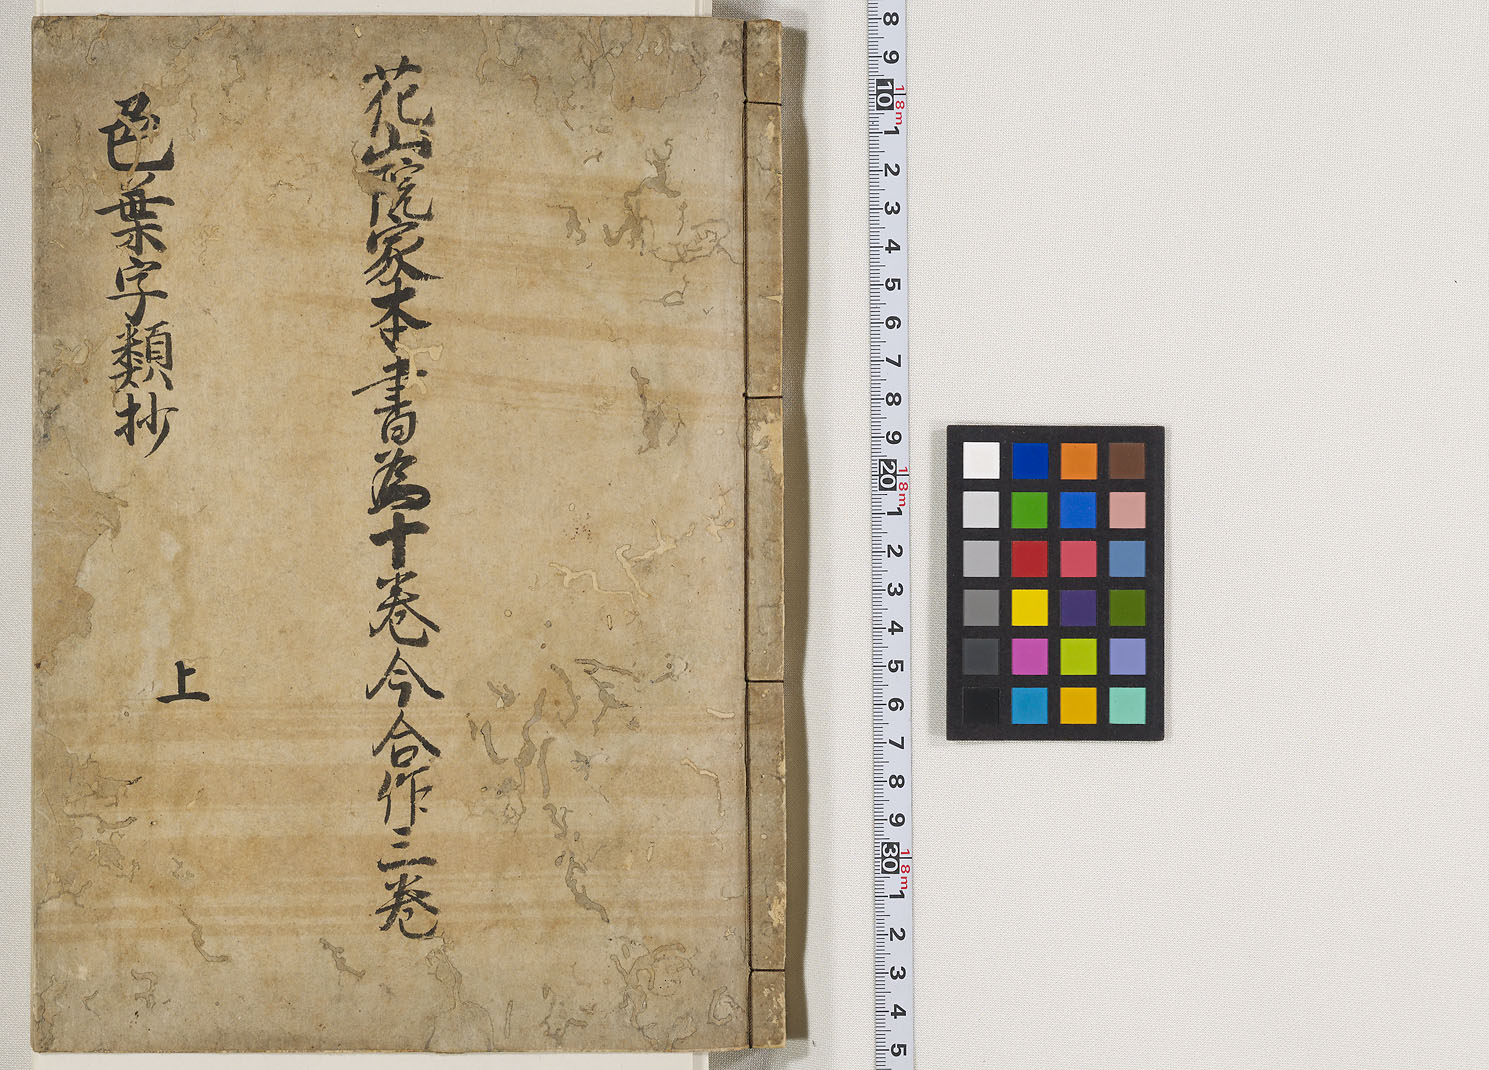 花山院家本書為十巻今合作二巻
色葉字類抄
上
8
9
10
18m
1
2
3
4
5
6
7
8
9
20
18m
1
2
3
4
5
6
7
8
9
30
18m
1
2
3
4
5